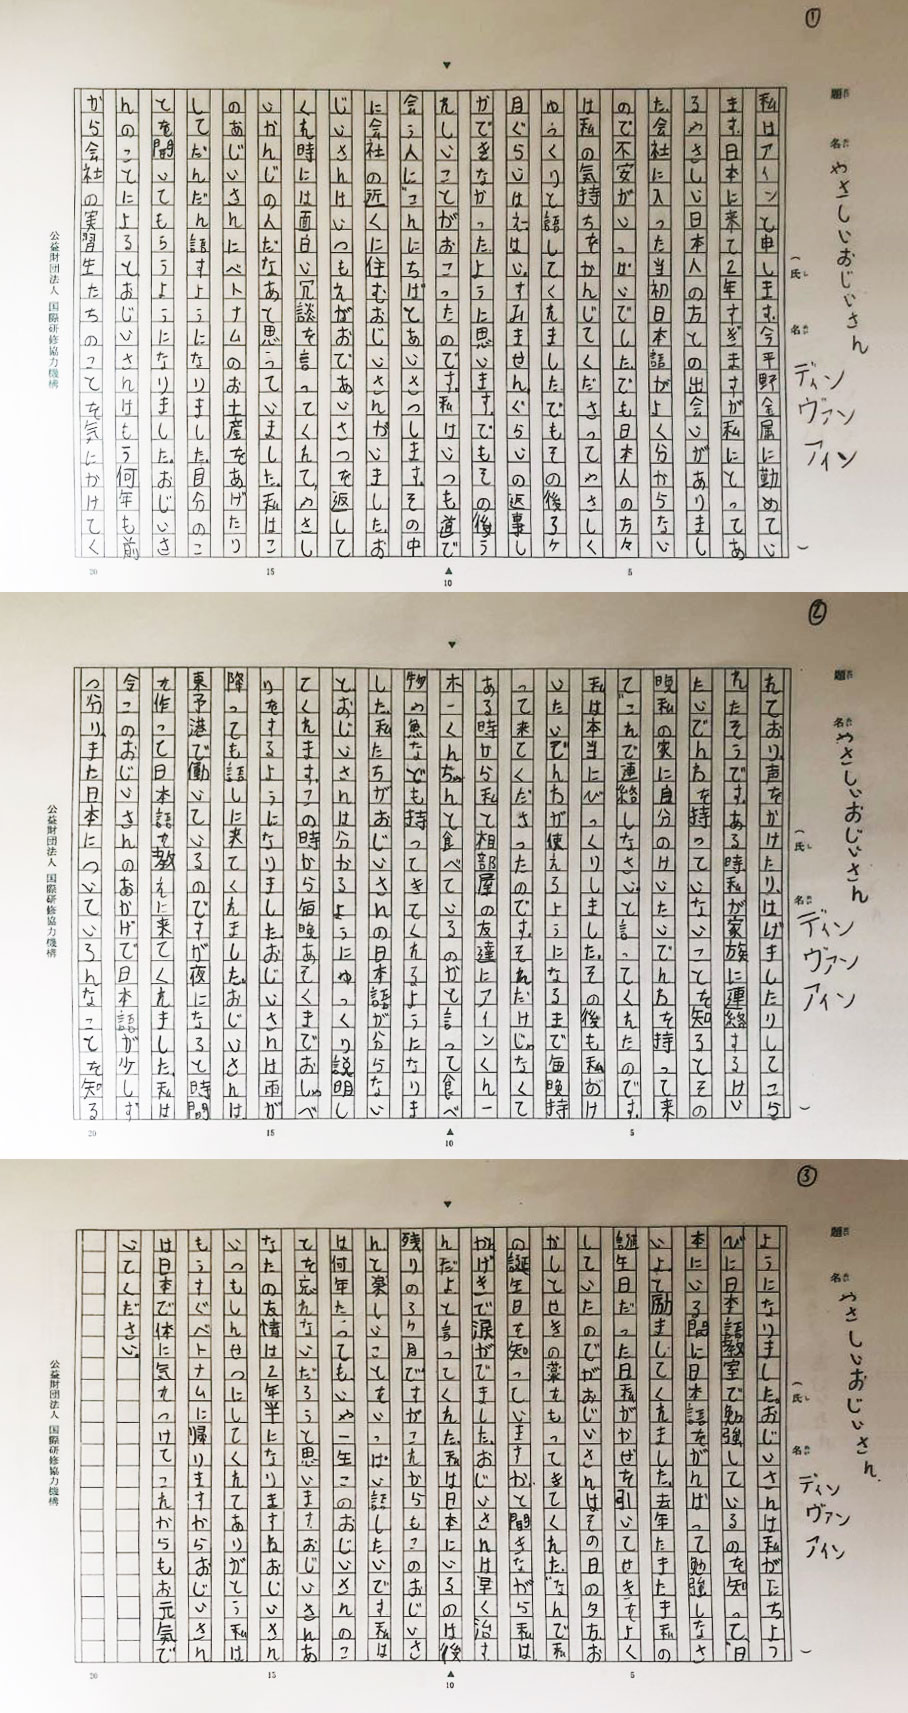 ①
題名 やさしいおじいさん
(氏名 ディン ヴァン アイン)
私はアインと申します。今平野金属に勤めてい
ます。日本に来て2年すぎますが私にとってあ
るやさしい日本人の方との出会いがありまし
た。会社に入った当初日本語がよく分からない
ので不安がいっぱいでした。でも日本人の方々
は私の気持ちをかんじてくださってやさしく
ゆっくりと話してくれました。でもその後3ヶ
月ぐらいはえはい。すみません。ぐらいの返事し
かできなかったように思います。でもその後う
れしいことがおこったのです。私はいつも道で
会う人に"こんにちは"とあいさつします。その中
に会社の近くに住むおじいさんがいました。お
じいさんはいつもえがおであいさつを返して
くれ時には面白い冗談を言ってくれて、やさし
いかんじの人だなあと思っていました。私はこ
のおじいさんにベトナムのお土産をあげたり
してだんだん話すようになりました。自分のこ
とを聞いてもらうようになりました。おじいさ
んのことによるとおじいさんはもう何年も前
から会社の実習生たちのことを気にかけてく
5
10
15
20
公益財団法人 国際研修協力機構
②
題名 やさしいおじいさん
(氏名 ディン ヴァン アイン)
れており、声をかけたり、はげましたりしてこら
れたそうです。ある時私が家族に連絡するけい
たいでんわを持っていないことを知るとその
晩私の家に自分のけいたいでんわを持って来
て"これで連絡しなさい"と言ってくれたのです。
私は本当にびっくりしました。その後も私がけ
いたいでんわが使えるようになるまで毎晩持
って来てくださったのです。それだけじゃなくて
ある時から私と相部屋の友達にアインくん一
ホーくんちゃんと食べているのかと言って食べ
物や魚なども持ってきてくれるようになりま
した。私たちがおじいさんの日本語が分らない
とおじいさんは分かるようにゆっくり説明し
てくれます。この時から毎晩あそくまでおしゃべ
りをするようになりました。おじいさんは雨が
降っても話しに来てくれました。おじいさんは
東予港で働いているのですが夜になると時間
を作って日本語を教えに来てくれました。私は
今このおじいさんのおかげで日本語が少しず
つ分り、また日本についていろんなことを知る
5
10
15
20
公益財団法人 国際研修協力機構
③
題名 やさしいおじいさん
(氏名 ディン ヴァン アイン)
ようになりました。おじいさんは私がにちよう
びに日本語教室で勉強しているのを知って、"日
本にいる間に日本語をがんばって勉強しなさ
いよ"と励ましてくれました。去年たまたま私の
誕生日だった日私がかぜを引いてせきをよく
していたのでがおじいさんはその日の夕方、お
かしとせきの薬をもってきてくれた。"なんで私
の誕生日を知っていますか"と聞きながら私は
かんげきで涙がでました。おじいさんは早く治す
んだよと言ってくれた。私は日本にいるのは後
残りの3ヶ月ですがこれからもこのおじいさ
んと楽しいことをいっぱい話したいです。私は
は何年たっても、いや一生このおじいさんのこ
とを忘れないだろうと思います。おじいさんあ
なたの友情は2年半になりますねおじいさん
いつもしんせつにしてくれてありがとう私は
もうすぐベトナムに帰りますからおじいさん
は日本で体に気をつけてこれからもお元気で
いてください。
5
10
15
20
公益財団法人 国際研修協力機構